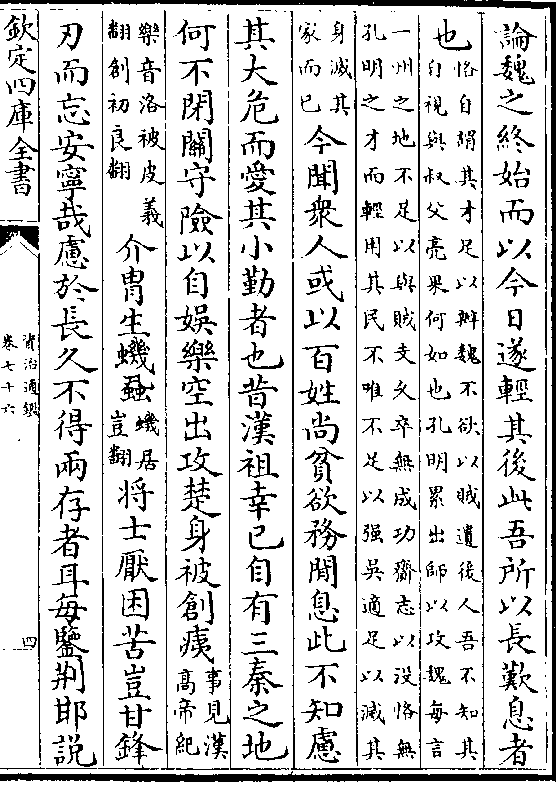 論魏之終始而以今日遂輕其後此吾所以長歎息者
也恪自謂其才足以辦魏不欲以賊遺後人吾不知其
自視與叔父亮果何如也孔明累出師以攻魏每言
一州之地不足以與賊支久卒無成功齎志以没恪無
孔明之才而輕用其民不唯不足以强吳適足以滅其
身滅其
家而已今聞衆人或以百姓尚貧欲務閒息此不知慮
其大危而愛其小勤者也昔漢祖幸已自有三秦之地
何不閉關守險以自娯樂空出攻楚身被創痍事見漢
高帝紀
樂音洛被皮義
翻創初良翻介胄生蟣蝨蟣居
豈翻將士厭困苦豈甘鋒
刃而忘安寧哉慮於長久不得兩存者耳每鑒荆邯説
欽定四庫全書
資治通鑑
卷七十六
四